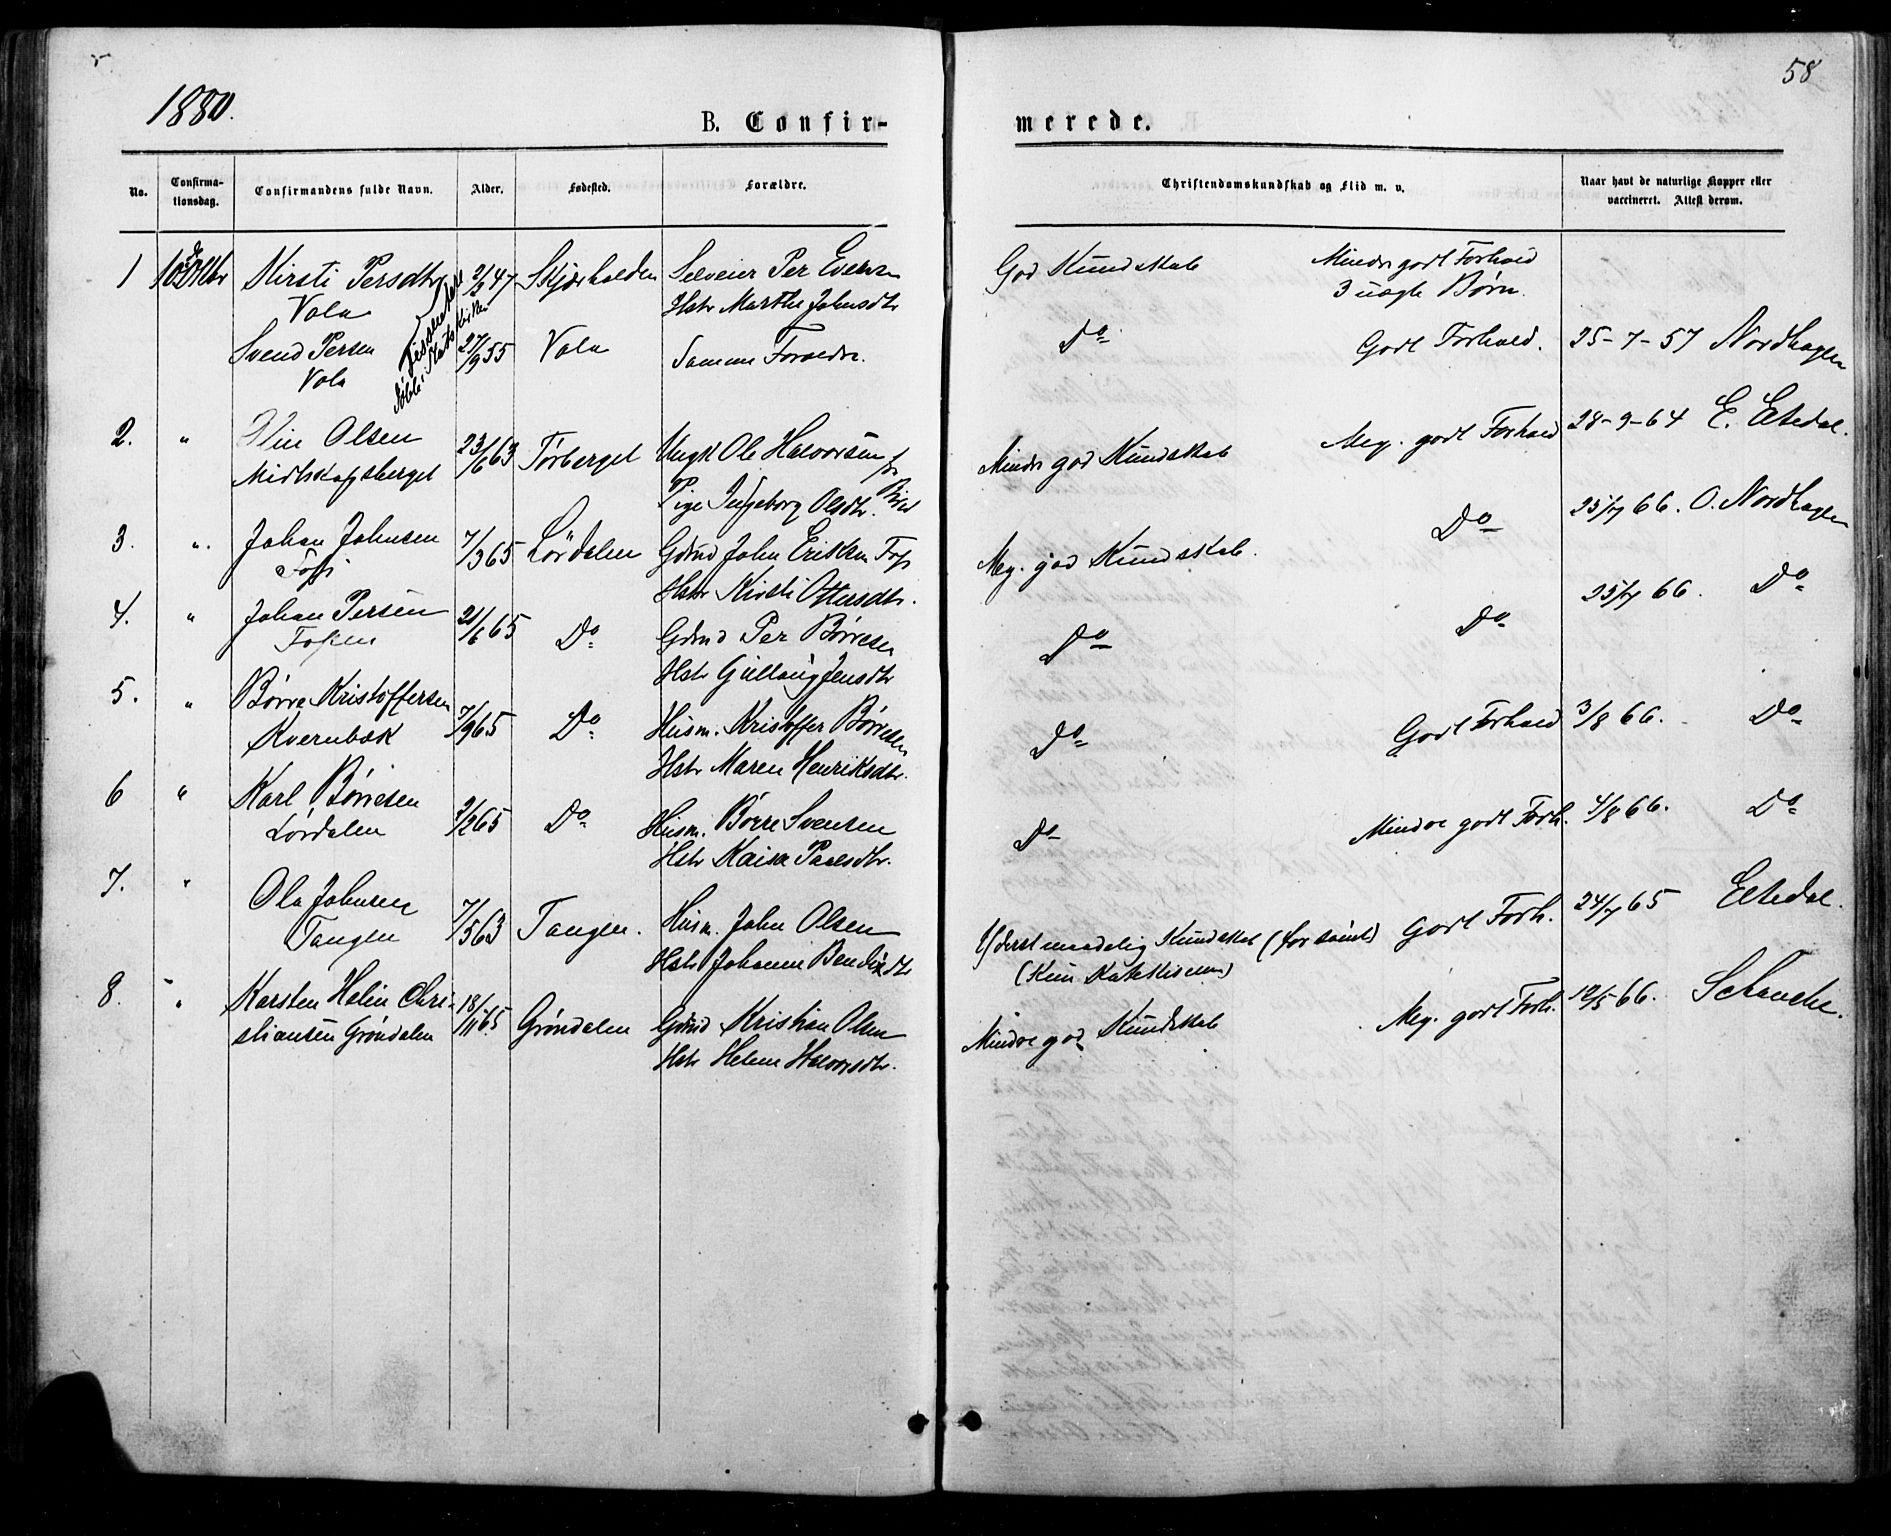 58
1880.
B. Confir-
merede.
No.
Confirma-
tionsdag.
Confirmandens fulde Navn.
Alder.
Fødested.
Forældre.
Christendomskundskab og Flid m. v.
Naar havt de naturlige Kopper eller
vaccineret. Attest derom.
1 10de Oktbr Kirsti Persdtr 2/2 47 Skjærholden Selveier Per Evensen God Kundskab Mindre godt Forhold
Vola Hstr Marthe Johnsdtr 3 uægte Børn.
Dissentere
døbte i Statskirken
Svend Persen 27/9 55 Vola Samme Forældre. Do Godt Forhold. 25-7-57 Nordhagen
Vola
2. " Olsen 23/6 63 Tørberget Ungk Ole Halvorsen Mindre god Kundskab Meg. godt Forhold 28-9-64 E. Eltedal.
Midtskogsberget Pige Ingeborg Olsdtr.
3. " Johan Johnsen 7/3 65 Lørdalen Gdmd John Eriksen Foss Meg. god Kundskab. Do 25/7 66. O. Nordhagen
Foss Hstr Kirsti Ottersdtr.
4. " Johan Persen 21/6 65 Do Gdmd Per Børresen Do Do 25/7 66. Do
Fossen Hstr Gullaug Jensdtr
5. " Børre Kristoffersen 7/9 65 Do Husm. Kristoffer Børresen Do Godt Forhold 3/8 66. Do
Kvernbæk Hstr Maren Henriksdtr.
6 " Karl Børresen 2/2 65 Do Husm. Børre Svensen Do Mindre godt Forh. 4/8 66. Do
Lørdalen Hstr Kaisa Paalsdtr.
7. " Ola Johnsen 7/5 63 Tangen. Husm. John Olsen Yderst maadelig Kundskab (forsømt) Godt Forh. 24/7 65 Eltedal.
Tangen Hstr Johanne Bendixdtr (Kun Katekismen)
8. " Karsten Helin Chri- 18/11 65 Grøndalen Gdmd Kristian Olsen Mindre god Kundskab Meg. godt Forh. 12/5 66. Schanche.
stiansen Grøndalen Hstr Helene Halvorsdtr.